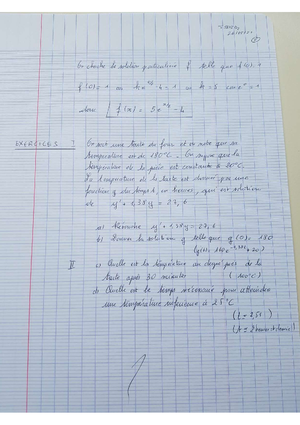 On cherche la solution particulière f telle que f(0) = 1
f(0) = 1 ⇔ k e^0 - 4 = 1 ⇔ k = 5 car e^0 = 1
donc f(x) = 5e - 4
EXERCICE 3 I On sort une tarte du four et on note que sa
température est de 180°C. On suppose que la
température de la pièce est constante à 20°C.
La température de la tarte est donnée, par une
fonction y du temps t, en heures, qui est solution
de y' + 1,38y = 27,6
a) Résoudre y' + 1,38y = 27,6
b) Trouver la solution y telle que y(0) = 180
II a) Quelle est la température au degré près de la
tarte après 30 minutes (100°C)
b) Quelle est le temps nécessaire pour atteindre
une température inférieure à 25°C
(t = 2,51)